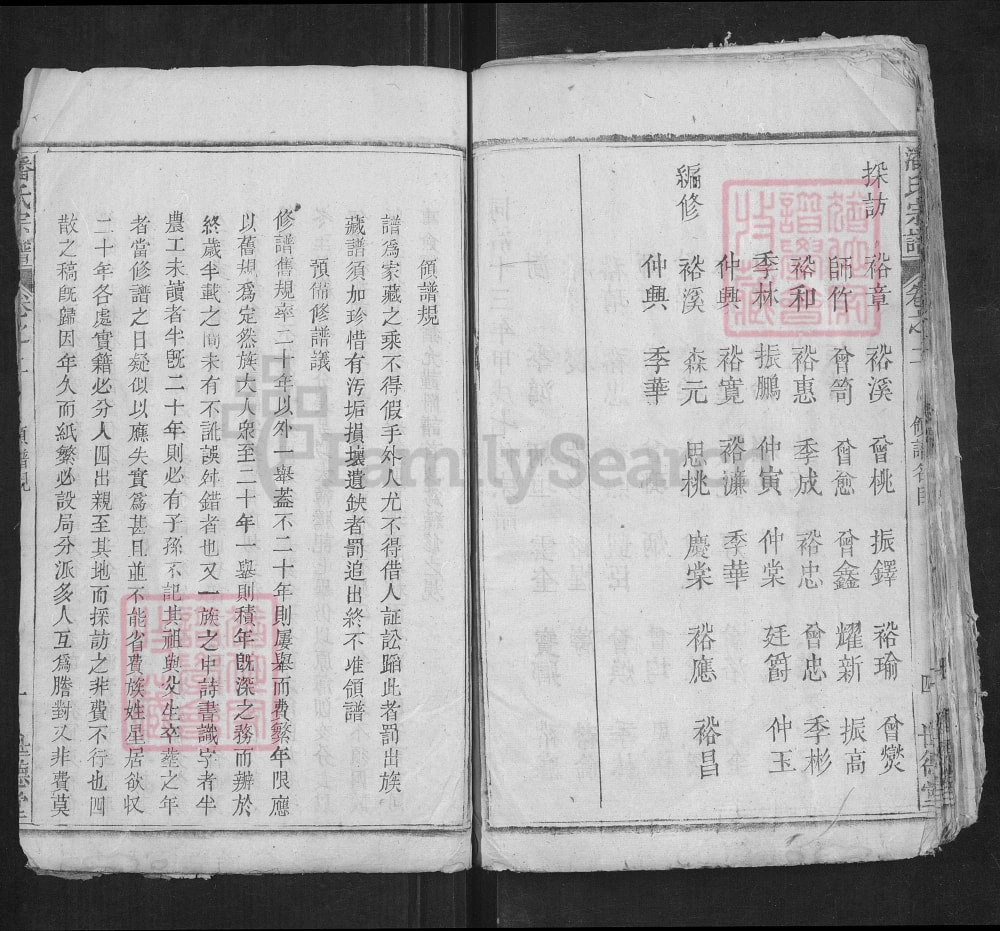 採訪 裕章 裕溪 曾桃 振鐸 裕瑜 曾爕
師竹 曾笥 曾愈 曾鑫 耀新 振高
裕和 裕惠 季成 裕忠 曾忠 季彬
季林 振鵬 仲寅 仲棠 廷爵 仲玉
仲興 裕寬 裕濂 季華
編修 裕溪 森元 思桃 慶棠 裕應 裕昌
仲興 季華
潘氏宗譜
領譜規
譜爲家藏之乘不得假手外人尤不得借人証訟蹈此者罰出族
藏譜須加珍惜有汚垢損壞遺缺者罰追出終不准領譜
預備修譜議
修譜舊規率二十年以外一舉葢不二十年則屢舉而費繁年限應
以舊規爲定然族大人衆至二十年一舉則積年既深之務而辦於
終歲半載之間未有不訛誤舛錯者也又一族之中詩書識字者半
農工未讀者半旣二十年則必有子孫不記其祖與父生卒塟之年
者當修譜之日疑似以應失實爲甚且並不能省費族姓星居欲収
二十年各處實籍必分人四出親至其地而採訪之非費不行也四
散之稿旣歸因年久而紙繁必設局分派多人互爲謄對又非費莫
潘氏宗譜
FamilySearch